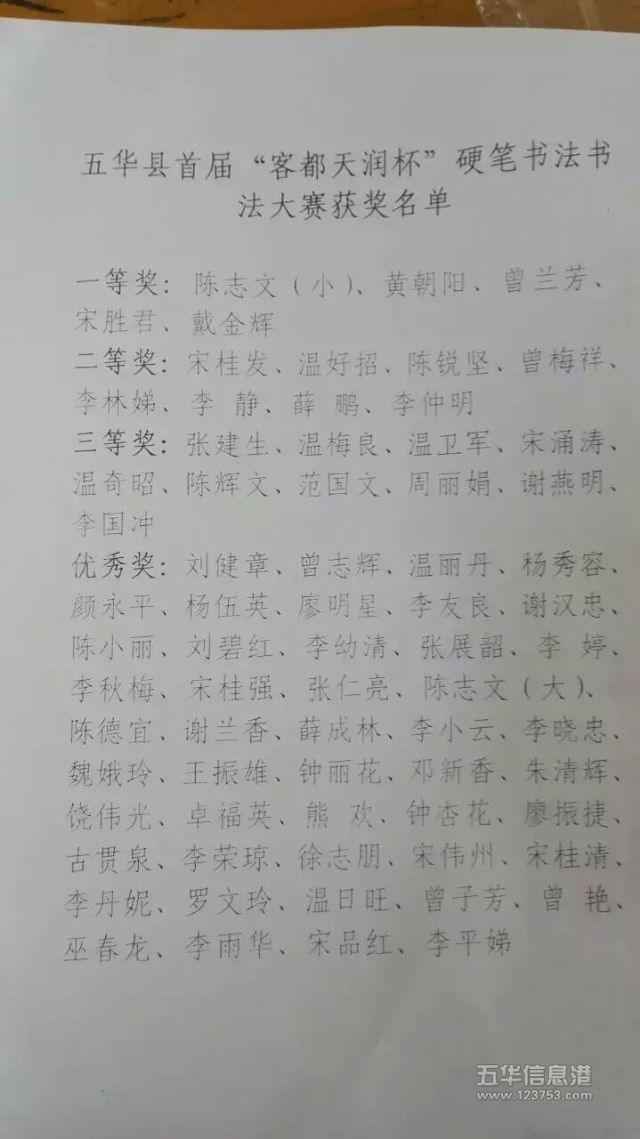 五华县首届“客都天润杯”硬笔书法书
法大赛获奖名单
一等奖：陈志文（小）、黄朝阳、曾兰芳、
宋胜君、戴金辉
二等奖：宋桂发、温好招、陈锐坚、曾梅祥、
李林娣、李 静、薛 鹏、李仲明
三等奖：张建生、温梅良、温卫军、宋涌涛、
温奇昭、陈辉文、范国文、周丽娟、谢燕明、
李国冲
优秀奖：刘健章、曾志辉、温丽丹、杨秀容、
颜永平、杨伍英、廖明星、李友良、谢汉忠、
陈小丽、刘碧红、李幼清、张展韶、李 婷、
李秋梅、宋桂强、张仁亮、陈志文（大）、
陈德宜、谢兰香、薛成林、李小云、李晓忠、
魏娥玲、王振雄、钟丽花、邓新香、朱清辉、
饶伟光、卓福英、熊 欢、钟杏花、廖振捷、
古贯泉、李荣琼、徐志朋、宋伟州、宋桂清、
李丹妮、罗文玲、温日旺、曾子芳、曾 艳、
巫春龙、李雨华、宋品红、李平娣
五华信息港
www.123753.com